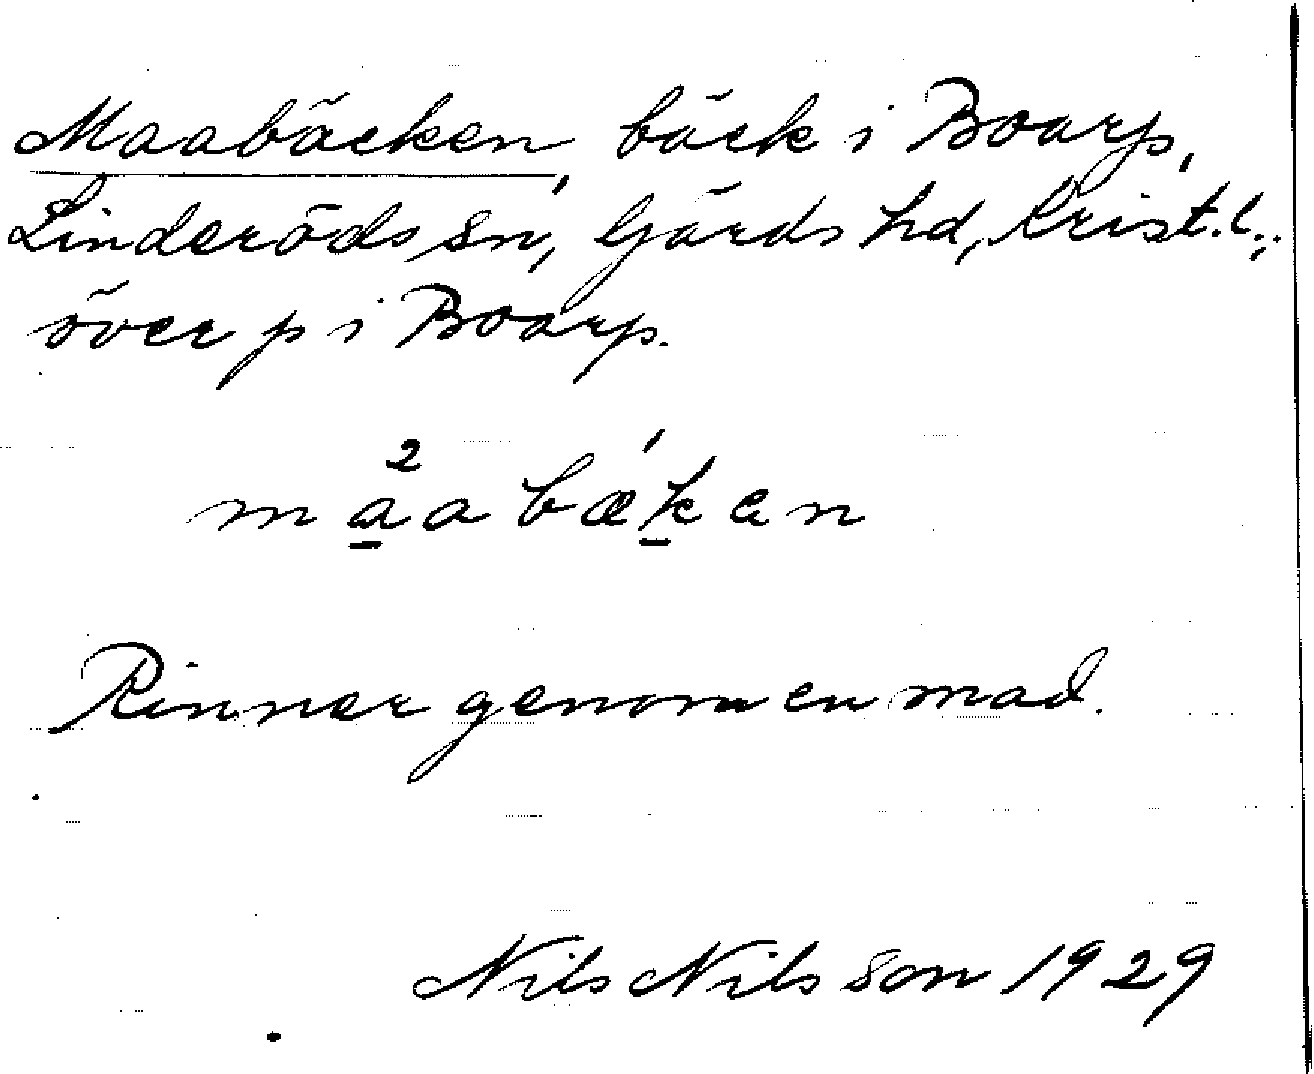 Maabäcken, bäck i Boarp,
Linderöds sn, Gärds hd, Krist.l.;
över p i Boarp.
ma̱²a bæḵ́en
Rinner genom en mad.
Nils Nilsson 1929